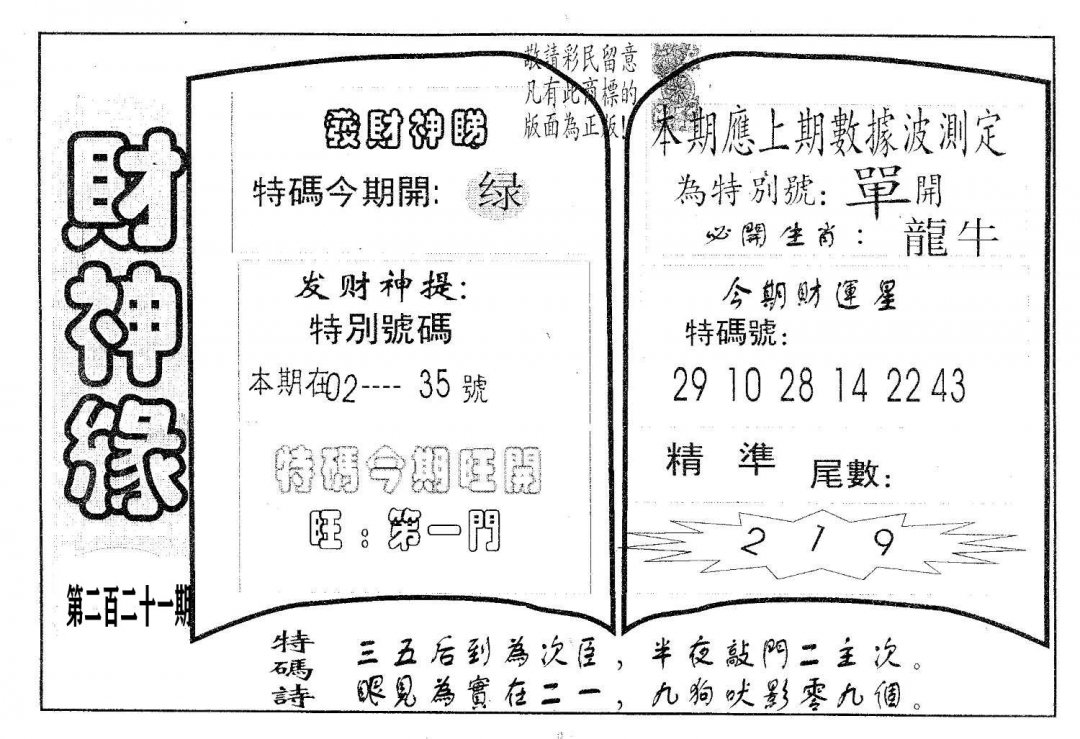 財神緣
第二百二十一期
敬請彩民留意
凡有此商標的
版面為正版!
發財神睇
特碼今期開: 绿
发财神提:
特別號碼
本期在02---- 35 號
特碼今期旺開
旺:第一門
本期應上期數據波測定
為特別號: 單開
必開生肖: 龍牛
今期財運星
特碼號:
29 10 28 14 22 43
精 準 尾數:
2 1 9
特碼詩
三五后到為次臣,半夜敲門二主次。
眼見為實在二一,九狗吠影零九個。